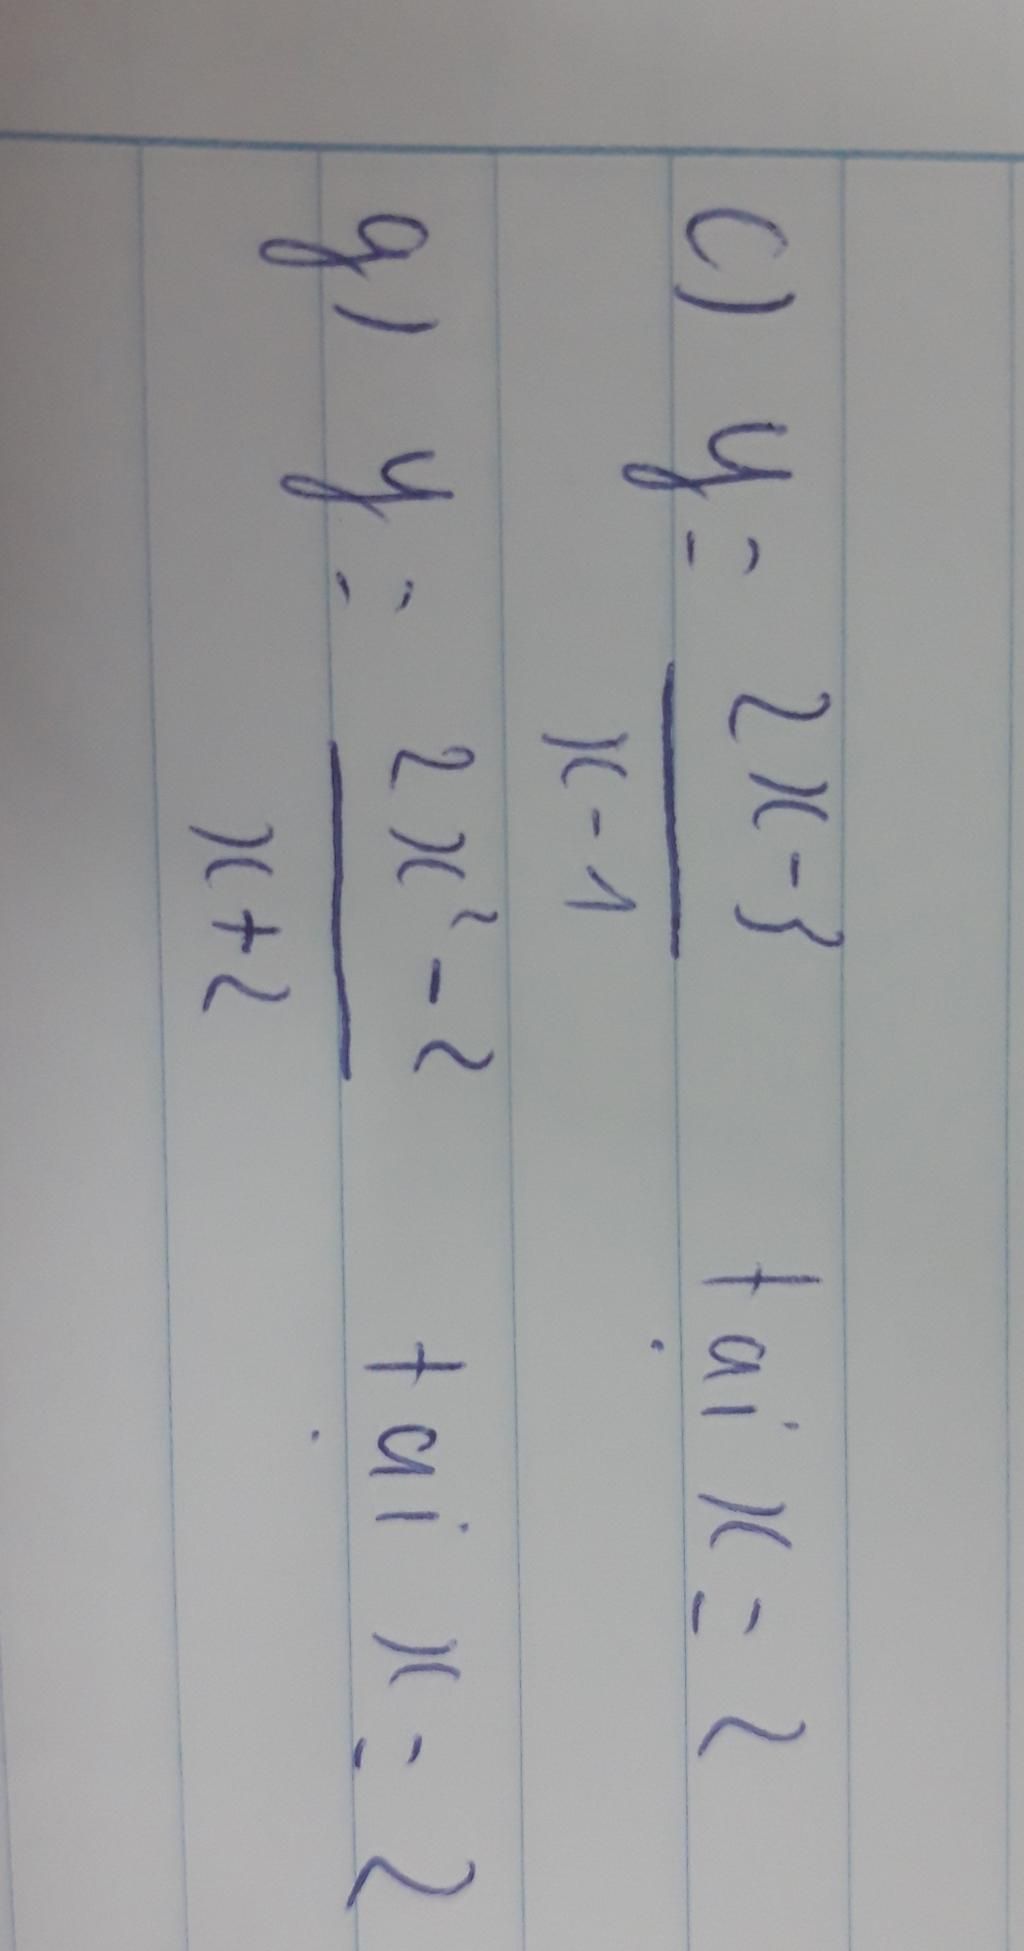 c) y = \frac{2x-3}{x-1} tại x = 2
g) y = \frac{2x²-2}{x+2} tại x = 2